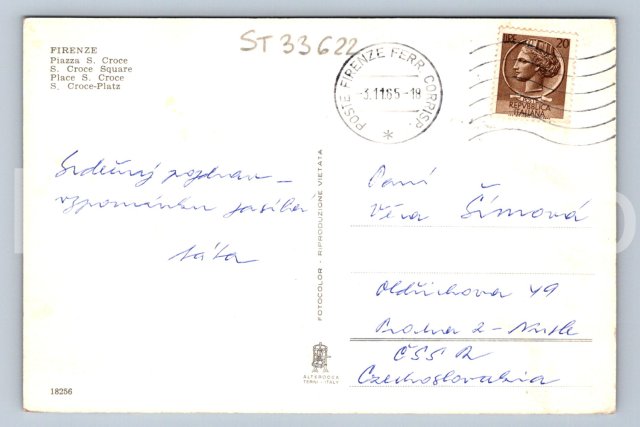 FIRENZE
Piazza S. Croce
S. Croce Square
Place S. Croce
S. Croce-Platz
ST 33622
POSTE FIRENZE FERR. CORRISP.
-3.11.65-18
*
LIRE 20
REPUBBLICA
ITALIANA
Srdečný pozdrav –
vzpomínku zasílá
táta
FOTOCOLOR - RIPRODUZIONE VIETATA
Paní
Věra Šímová
Oldřichova 49
Praha 2 - Nusle
ČSSR
Czechoslovakia
ALTEROCCA
TERNI - ITALY
18256